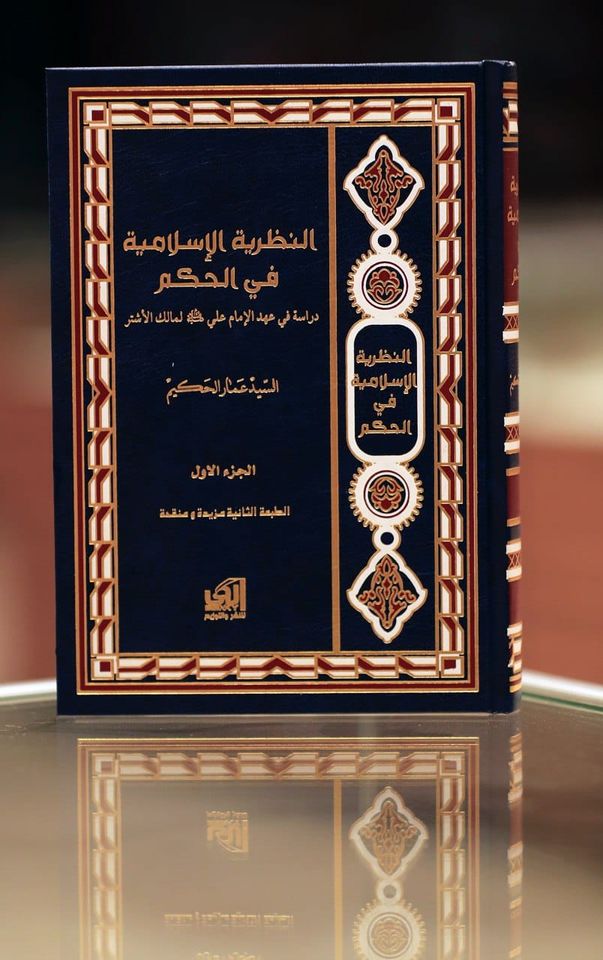 النظرية الإسلامية
في الحكم
دراسة في عهد الإمام علي ﷺ لمالك الأشتر
السيد عمار الحكيم
الجزء الاول
الطبعة الثانية مزيدة و منقحة
للنشر والتوزيع
النظرية
الإسلامية
في
الحكم